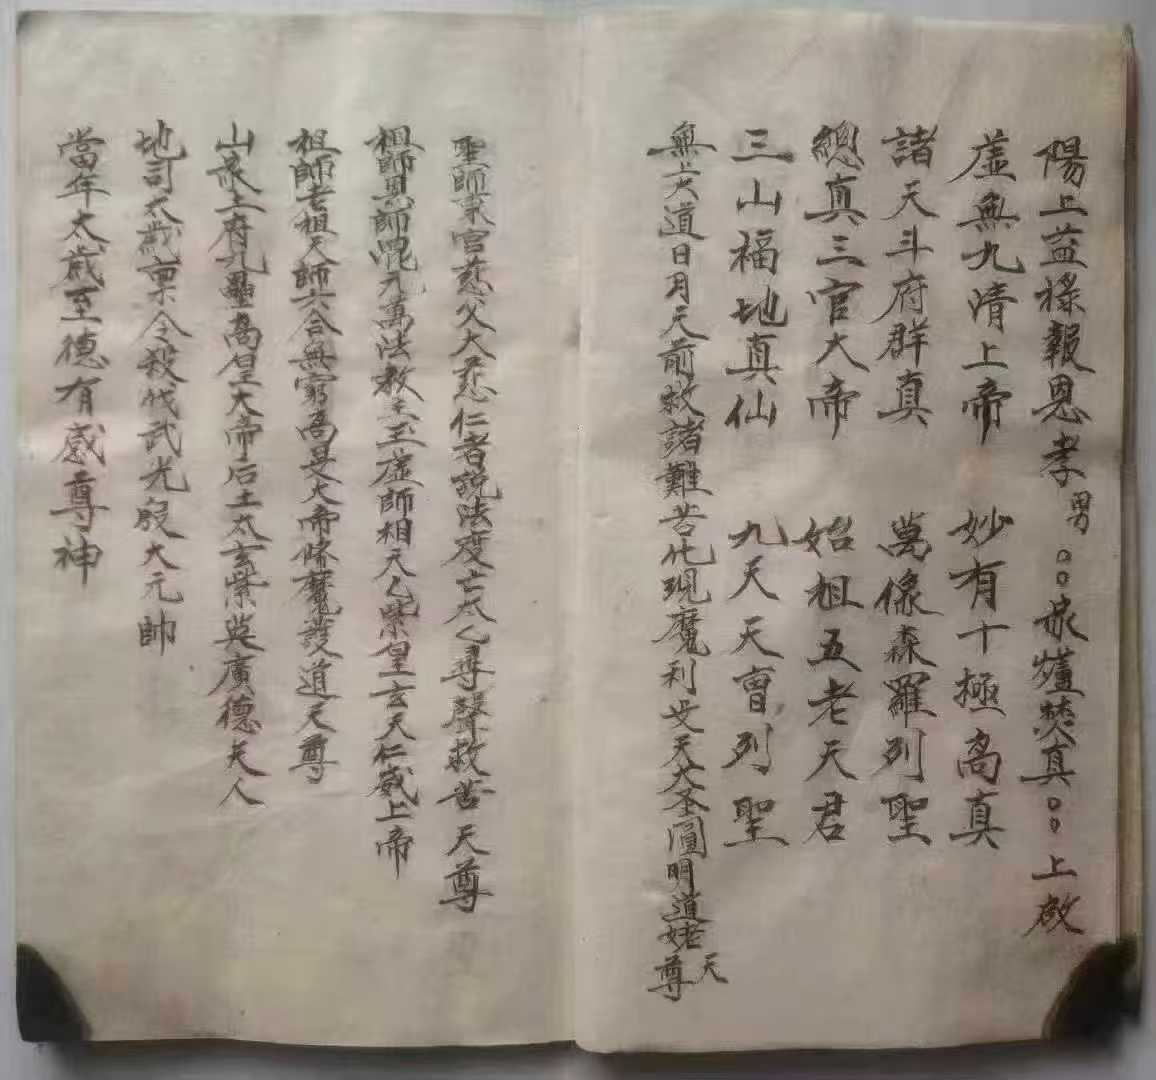 陽上益祿報恩孝男○○ 爐焚真○○上啟
虛無九清上帝 妙有十極高真
諸天斗府群真 萬像森羅列聖
總真三官大帝 始祖五老天君
三山福地真仙 九天天曹列聖
無上大道日月天前救諸難苦化現魔利支天大圣圓明道姥天尊
聖師東宮慈父大慈仁者說法度亡太乙尋聲救苦天尊
祖師恩師混元萬法教主玉虛師相天乙紫皇玄天仁威上帝
祖師老祖天師六合無窮高旻大帝降魔護道天尊
山泉土府九壘高皇大帝后土太玄紫英廣德夫人
地司太歲稟令殺伐武光殷大元帥
當年太歲至德有感尊神